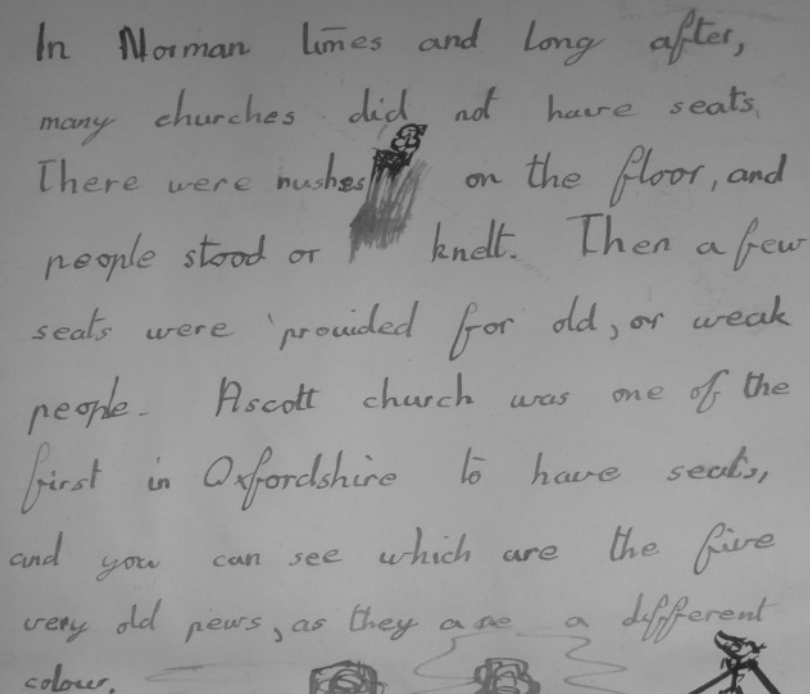 In Norman times and long after,
many churches did not have seats.
There were rushes on the floor, and
people stood or knelt. Then a few
seats were provided for old, or weak
people. Ascott church was one of the
first in Oxfordshire to have seats,
and you can see which are the five
very old pews, as they are a different
colour.